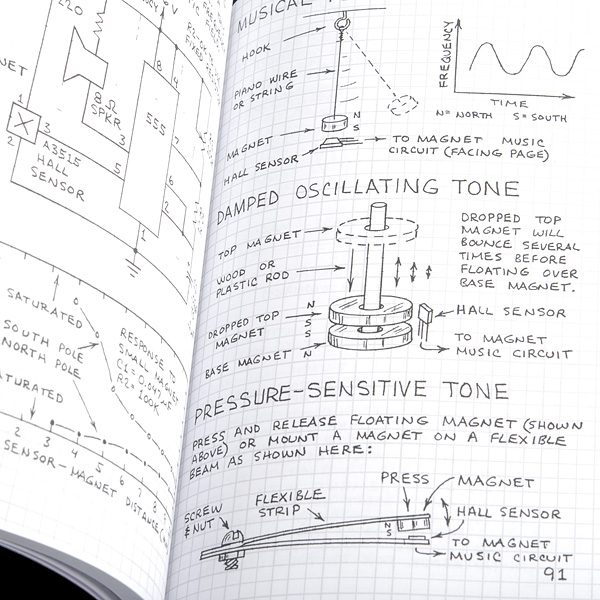 220
8 Ω
SPKR
8
4
555
7
6
2
5
3
1
1
3
2
A3515
HALL
SENSOR
SATURATED
SOUTH POLE
NORTH POLE
RESPONSE TO
SMALL MAGNET
C1 = 0.047µF
R2 = 100K
SENSOR-MAGNET DISTANCE
2 3 4 5 6 7 8
MUSICAL
HOOK
PIANO WIRE
OR STRING
MAGNET
N
S
HALL SENSOR
TO MAGNET MUSIC
CIRCUIT (FACING PAGE)
FREQUENCY
TIME
N = NORTH S = SOUTH
DAMPED OSCILLATING TONE
TOP MAGNET
WOOD OR
PLASTIC ROD
DROPPED TOP
MAGNET WILL
BOUNCE SEVERAL
TIMES BEFORE
FLOATING OVER
BASE MAGNET.
DROPPED TOP
MAGNET
N
S
S
N
BASE MAGNET
HALL SENSOR
TO MAGNET
MUSIC CIRCUIT
PRESSURE-SENSITIVE TONE
PRESS AND RELEASE FLOATING MAGNET (SHOWN
ABOVE) OR MOUNT A MAGNET ON A FLEXIBLE
BEAM AS SHOWN HERE:
SCREW
& NUT
FLEXIBLE
STRIP
PRESS
MAGNET
N
S
HALL SENSOR
TO MAGNET
MUSIC CIRCUIT
91